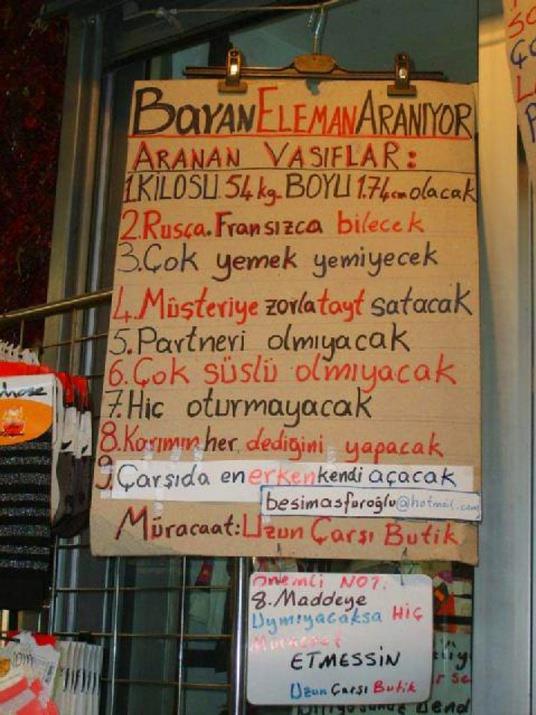 BAYAN ELEMAN ARANIYOR
ARANAN VASIFLAR:
1.KİLOSU.54kg.BOYU 1.74cm olacak
2.Rusça.Fransızca bilecek
3.Çok yemek yemiyecek
4.Müşteriye zorla tayt satacak
5.Partneri olmıyacak
6.Çok süslü olmıyacak
7.Hiç oturmayacak
8.Karımın her dediğini yapacak
9.Çarşıda en erken kendi açacak
besimasfuroğlu@hotmail.com
Müracaat:Uzun Çarşı Butik
önemli NOT:
8.Maddeye
Uymıyacaksa HİÇ
Müracaat
ETMESSİN
Uzun Çarşı Butik